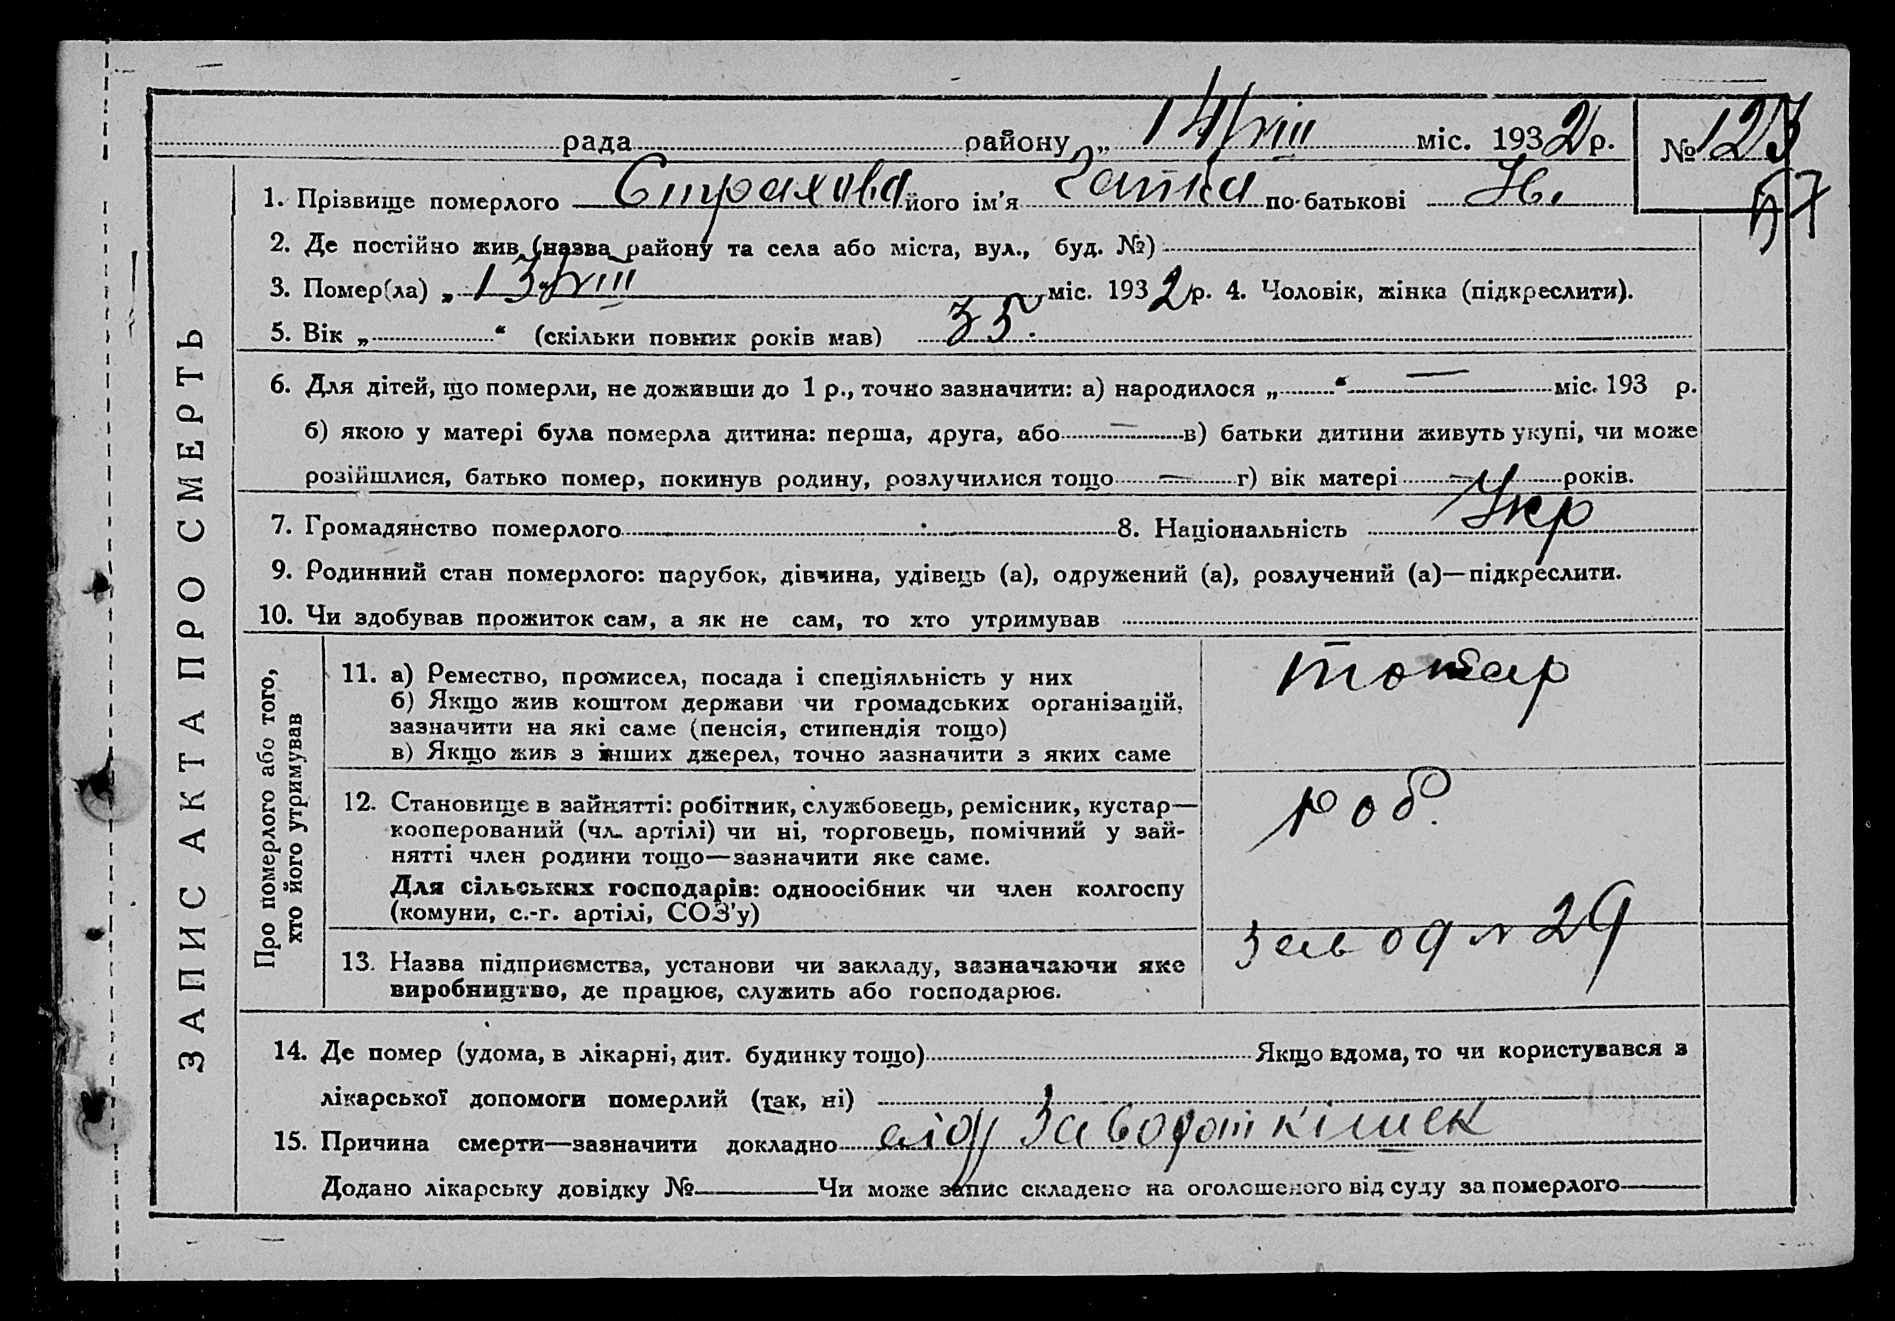 рада району „ 14/VIII міс. 1932 р. № 123
57
1. Прізвище померлого Страхова його ім'я по-батькові Н.
2. Де постійно жив (назва району та села або міста, вул., буд. №)
3. Помер(ла) „ 13/VIII міс. 1932 р. 4. Чоловік, жінка (підкреслити).
5. Вік „ “ (скільки повних років мав) 35.
6. Для дітей, що померли, не доживши до 1 р., точно зазначити: а) народилося „ “ — міс. 193 р.
б) якою у матері була померла дитина: перша, друга, або — в) батьки дитини живуть укупі, чи може
розійшлися, батько помер, покинув родину, розлучилися тощо — г) вік матері — років.
7. Громадянство померлого 8. Національність Укр
9. Родинний стан померлого: парубок, дівчина, удівець (а), одружений (а), розлучений (а)—підкреслити.
10. Чи здобував прожиток сам, а як не сам, то хто утримував
ЗАПИС АКТА ПРО СМЕРТЬ
Про померлого або того,
хто його утримував
11. а) Ремество, промисел, посада і спеціяльність у них
б) Якщо жив коштом держави чи громадських організацій,
зазначити на які саме (пенсія, стипендія тощо)
в) Якщо жив з інших джерел, точно зазначити з яких саме
токар
12. Становище в зайнятті: робітник, службовець, ремісник, кустар—
кооперований (чл. артілі) чи ні, торговець, помічний у зай-
нятті член родини тощо—зазначити яке саме.
Для сільських господарів: одноосібник чи член колгоспу
(комуни, с.-г. артілі, СОЗ'у)
роб.
13. Назва підприємства, установи чи закладу, зазначаючи яке
виробництво, де працює, служить або господарює.
завод № 29
14. Де помер (удома, в лікарні, дит. будинку тощо) Якщо вдома, то чи користувався з
лікарської допомоги померлий (так, ні)
15. Причина смерти—зазначити докладно кішек
Додано лікарську довідку № Чи може запис складено на оголошеного від суду за померлого